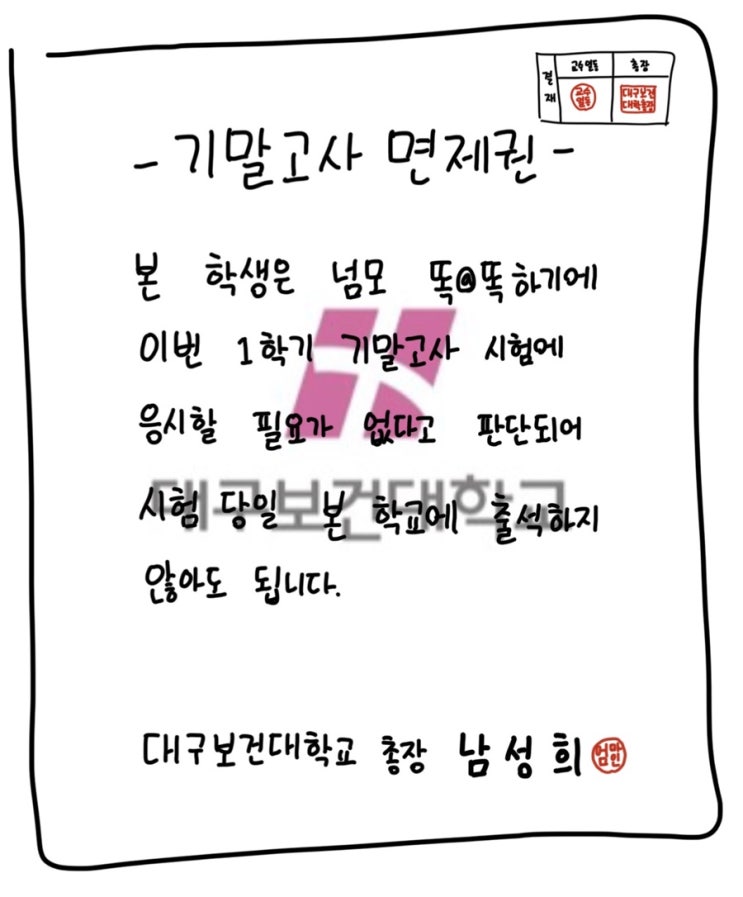 결재 교수일동 총장
교수일동 대구보건대학총장
- 기말고사 면제권 -
본 학생은 넘모 똑@똑하기에
이번 1학기 기말고사 시험에
응시할 필요가 없다고 판단되어
시험 당일 본 학교에 출석하지
않아도 됩니다.
대구보건대학교
대구보건대학교 총장 남성희
엄마인